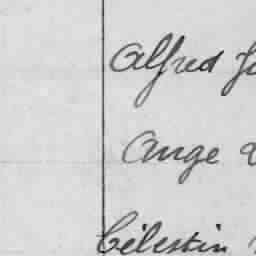 Alfred
Ange
Célestin